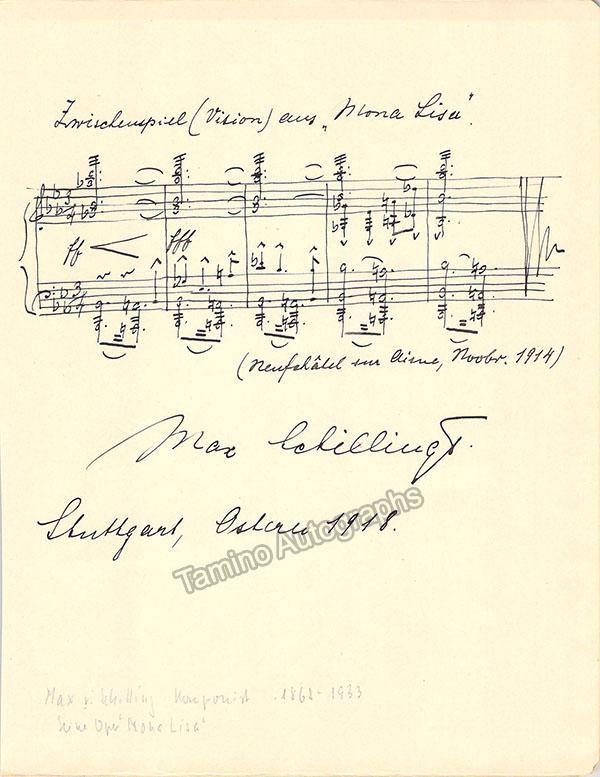 Zwischenspiel (Vision) aus „Mona Lisa“.
ff fff
(Neufchâtel sur Aisne, Novbr. 1914)
Max Schillings.
Stuttgart, Ostern 1918.
Tamino Autographs
Max v. Schilling Komponist 1868-1933
Seine Oper "Mona Lisa"